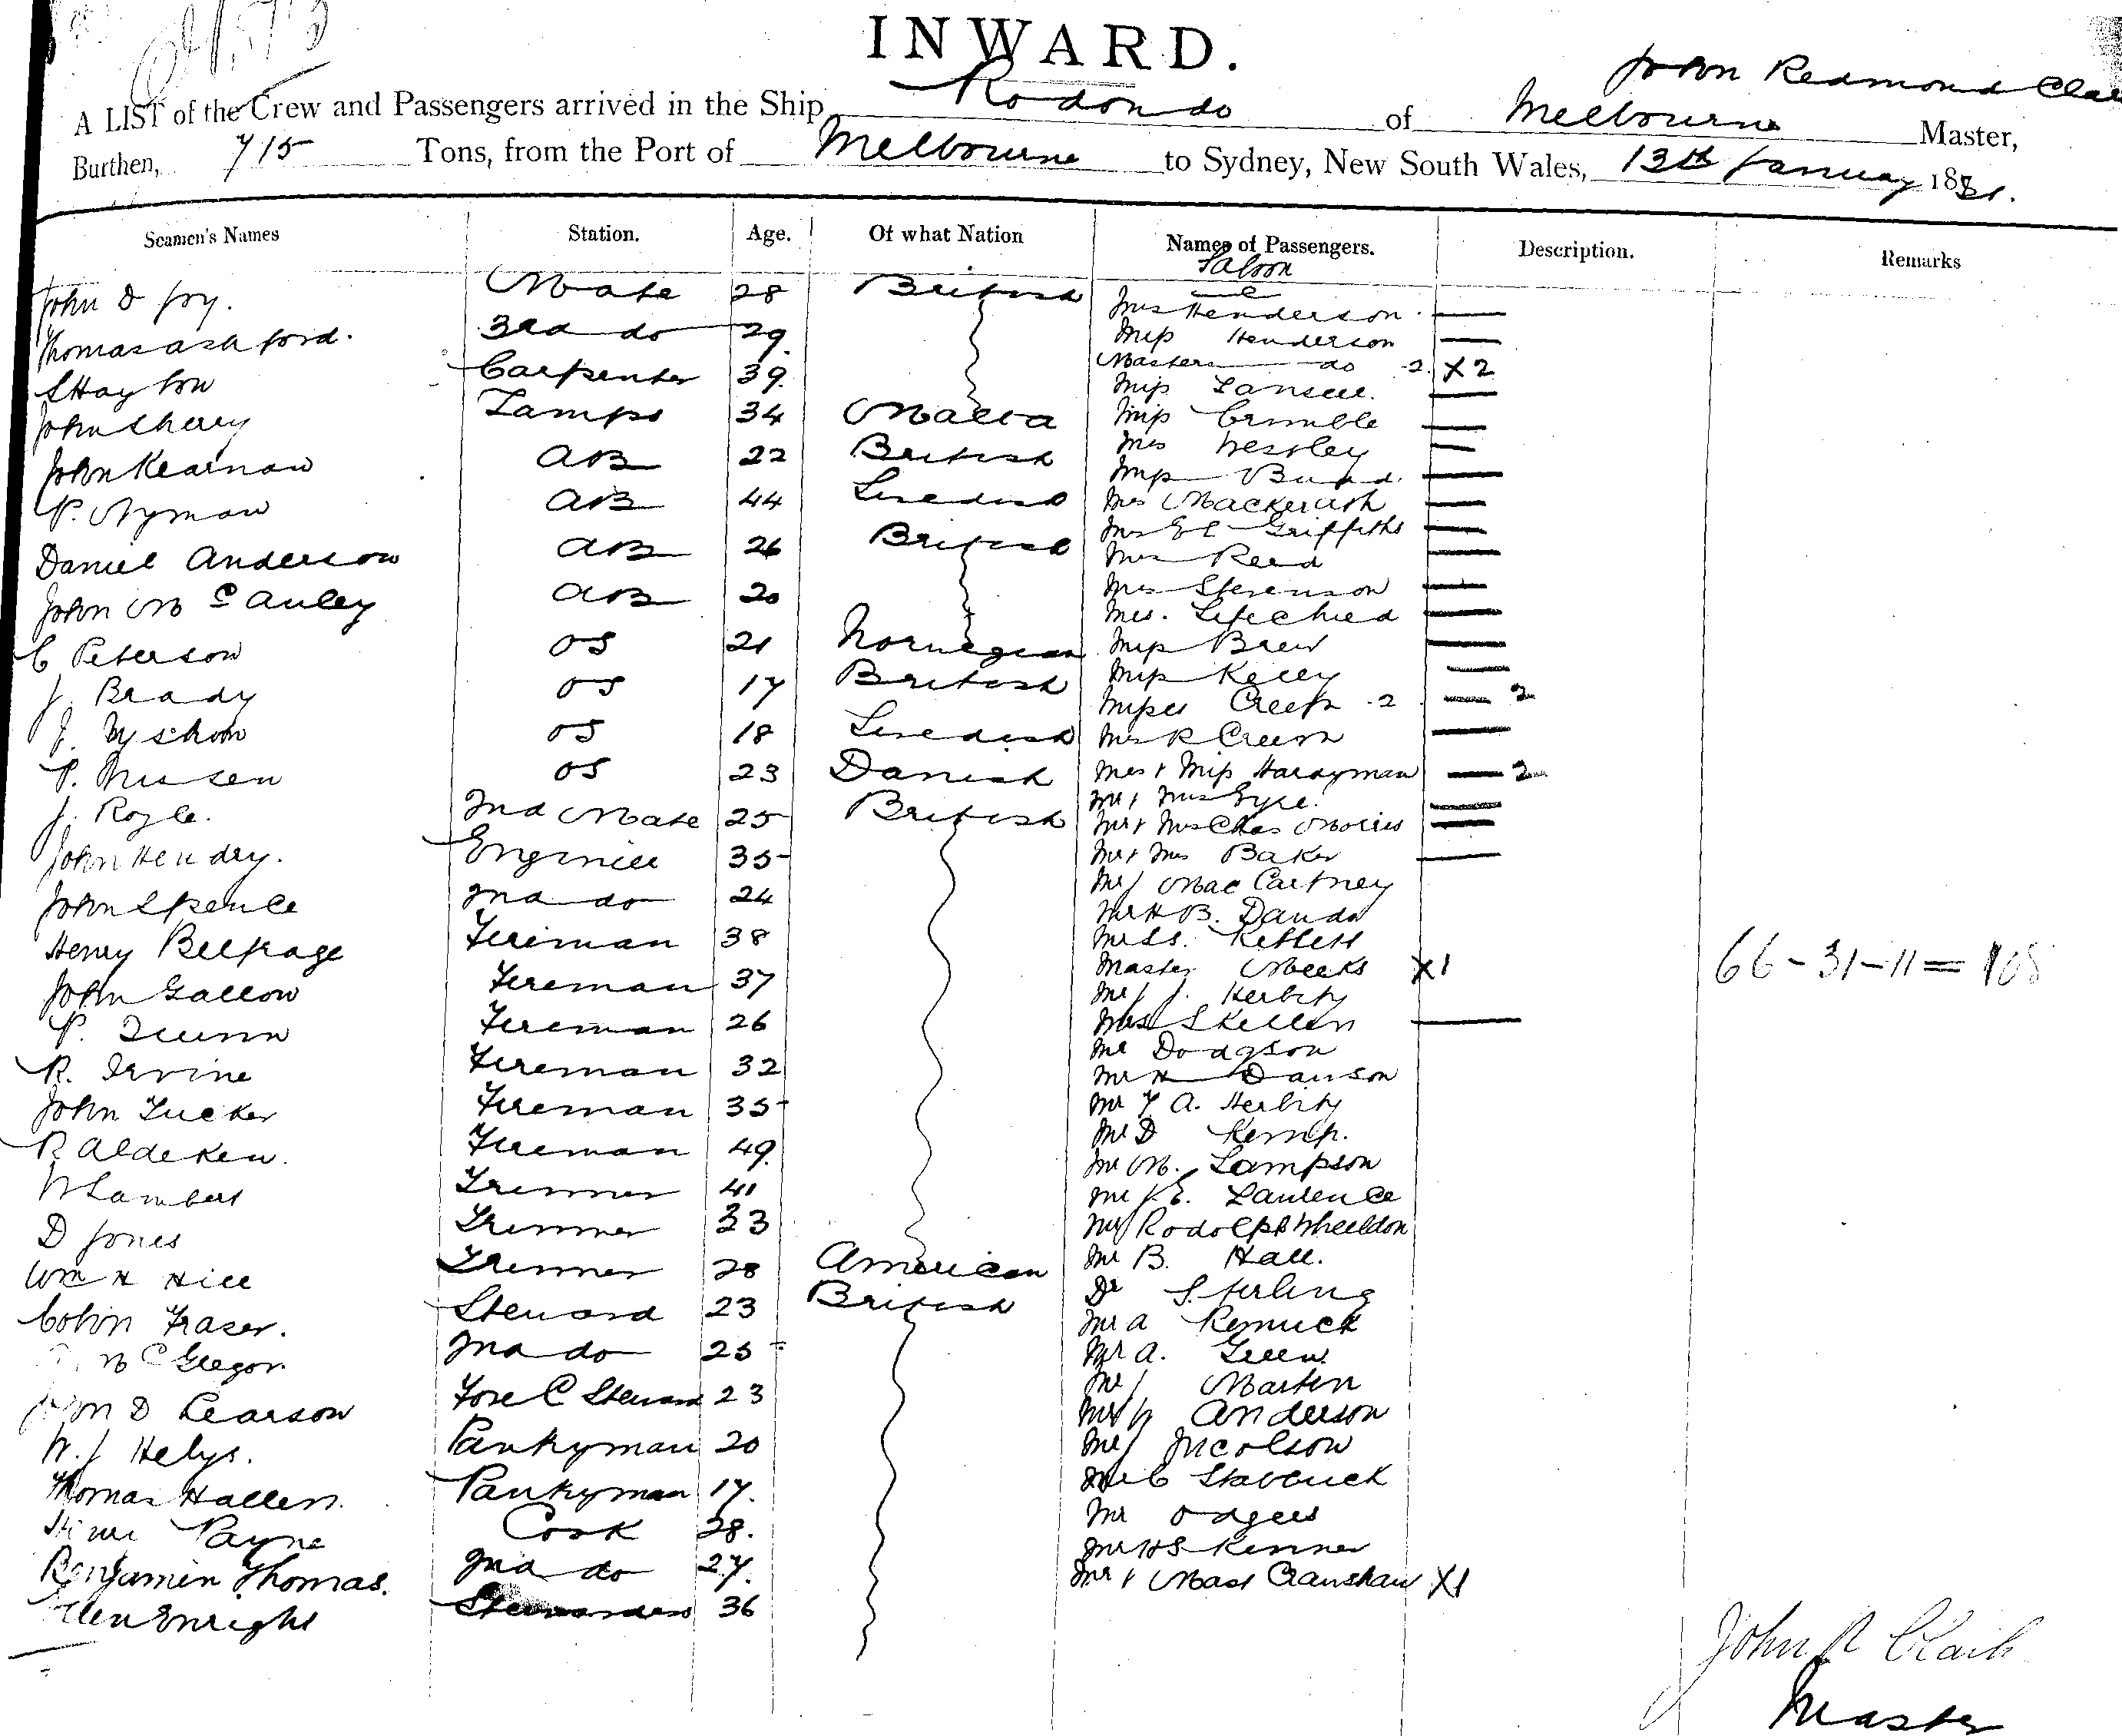 INWARD.
John Redmond Cla
A LIST of the Crew and Passengers arrived in the Ship Rodondo of Melbourne Master,
Burthen, 715 Tons, from the Port of Melbourne to Sydney, New South Wales, 13th January 1881.
Seamen's Names Station. Age. Of what Nation Names of Passengers. Description. Remarks
Saloon
John D Joy. Mate 28 British Mrs Henderson
Thomas Ashford. 3rd do 29 Miss Henderson
Masters do 2 X2
S Hayton Carpenter 39 Miss Lansell
John Sherry Lamps 34 Malta Miss Crumble
Mrs Westley
John Kearnan AB 22 British Miss Bund.
P. Nyman AB 44 Swedish Mrs Mackerish
Mrs E C Griffiths
Daniel Anderson AB 26 British Mrs Reed
John McAuley AB 20 Mrs Stevenson
Mrs.
C Peterson OS 21 Norwegian Miss Brew
J. Brady OS 17 British Miss Kelly
Misses 2 2
J. OS 18 Swedish Mrs R
P. Nissen OS 23 Danish Mrs & Miss Hardyman 2
J. Royle. 2nd Mate 25 British Mr & Mrs Eyre.
Mr & Mrs Chas Morris
John Hendry. Engineer 35 Mr & Mrs Baker
Mr J MacCartney
John Spence 2nd do 24 Mr H B.
Henry Belfrage Fireman 38
Master Meeks X1
John Gallow Fireman 37 Mr J. 66-31-11=108
P. Quinn Fireman 26 Skellen
Mr Dodgson
R. Irvine Fireman 32 Mr H Dawson
John Tucker Fireman 35 Mr A.
Mr D Kemp.
R Aldeken. Fireman 49 Mr M. Lampson
W Lambert Trimmer 41 Mr J. E. Laurence
D Jones Trimmer 33 Mr Rodolph Wheeldon
Wm H Hill Trimmer 28 American Mr B. Hall.
Dr Stirling
Colin Fraser. Steward 23 British Mr A
McGregor 2nd do 25 Mr A. Green
John D Pearson Fore C Steward 23 Mr J Martin
Mr W Anderson
W. J Helys. Pantryman 20 Mr J Nicolson
Thomas Hallen. Pantryman 17. Mr C
Payne Cook 28. Mr Odgers
Mr H S Kenner
Benjamin Thomas. 2nd do 27. Mr & Mast Cranshaw X1
Ellen Enright Stewardess 36
John R Clark
Master